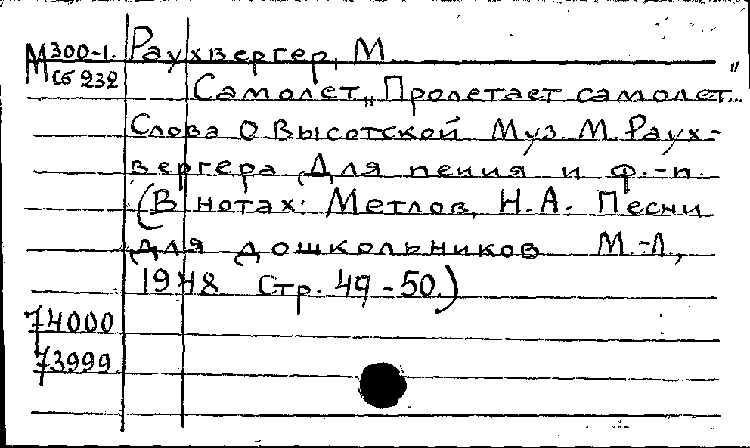 М 300-1. Раухвергер, М.
Сб 232
Самолет. „Пролетает самолет..."
Слова О. Высотской Муз. М. Раух-
вергера Для пения и ф.-п.
(В нотах: Метлов, Н.А. Песни
для дошкольников М.-Л.,
1948 Стр. 49-50.)
74000
73999